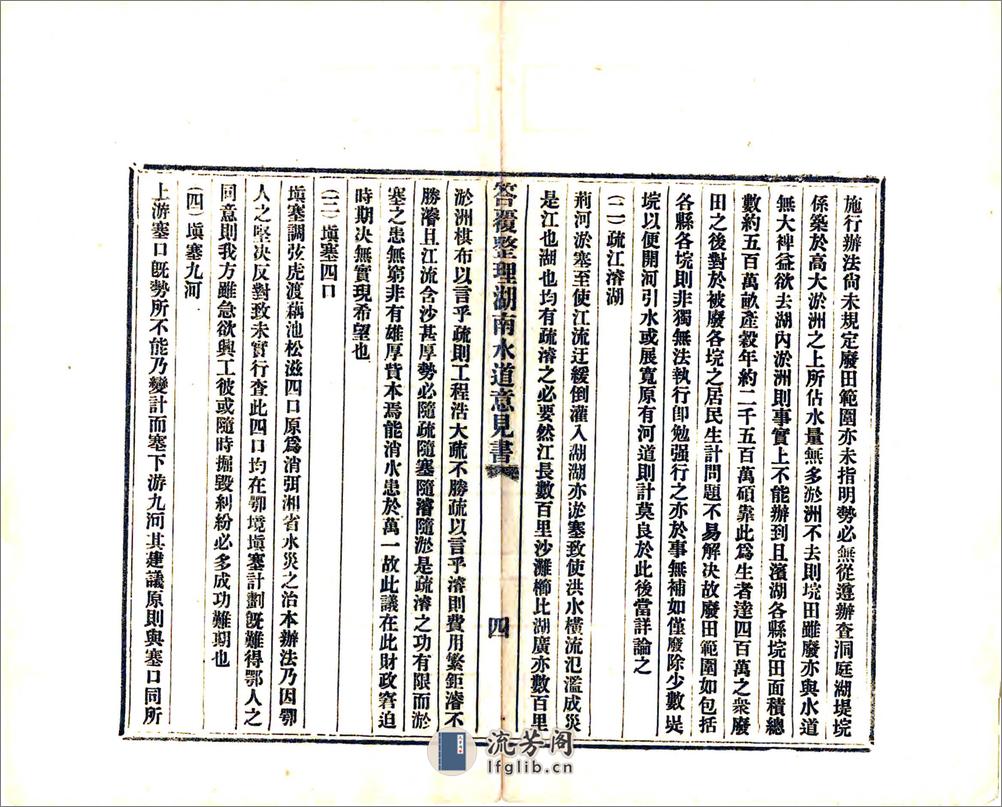 施行辦法尙未規定廢田範圍亦未指明勢必無從遵辦查洞庭湖堤垸
係築於高大淤洲之上所佔水量無多淤洲不去則垸田雖廢亦與水道
無大裨益欲去湖內淤洲則事實上不能辦到且濱湖各縣垸田面積總
數約五百萬畝產榖年約二千五百萬碩靠此爲生者達四百萬之衆廢
田之後對於被廢各垸之居民生計問題不易解决故廢田範圍如包括
各縣各垸則非獨無法執行卽勉强行之亦於事無補如僅廢除少數堤
垸以便開河引水或展寬原有河道則計莫良於此後當詳論之
(二)疏江濬湖
荊河淤塞至使江流迂緩倒灌入湖湖亦淤塞致使洪水橫流氾濫成災
是江也湖也均有疏濬之必要然江長數百里沙灘櫛比湖廣亦數百里
答覆整理湖南水道意見書
四
淤洲棋布以言乎疏則工程浩大疏不勝疏以言乎濬則費用繁鉅濬不
勝濬且江流含沙甚厚勢必隨疏隨塞隨濬隨淤是疏濬之功有限而淤
塞之患無窮非有雄厚貲本焉能消水患於萬一故此議在此財政窘迫
時期决無實現希望也
(三)塡塞四口
塡塞調弦虎渡藕池松滋四口原爲消弭湘省水災之治本辦法乃因鄂
人之堅决反對致未實行查此四口均在鄂境塡塞計劃旣難得鄂人之
同意則我方雖急欲興工彼或隨時掘毀糾紛必多成功難期也
(四)塡塞九河
上游塞口旣勢所不能乃變計而塞下游九河其建議原則與塞口同所
流芳阁
lfglib.cn